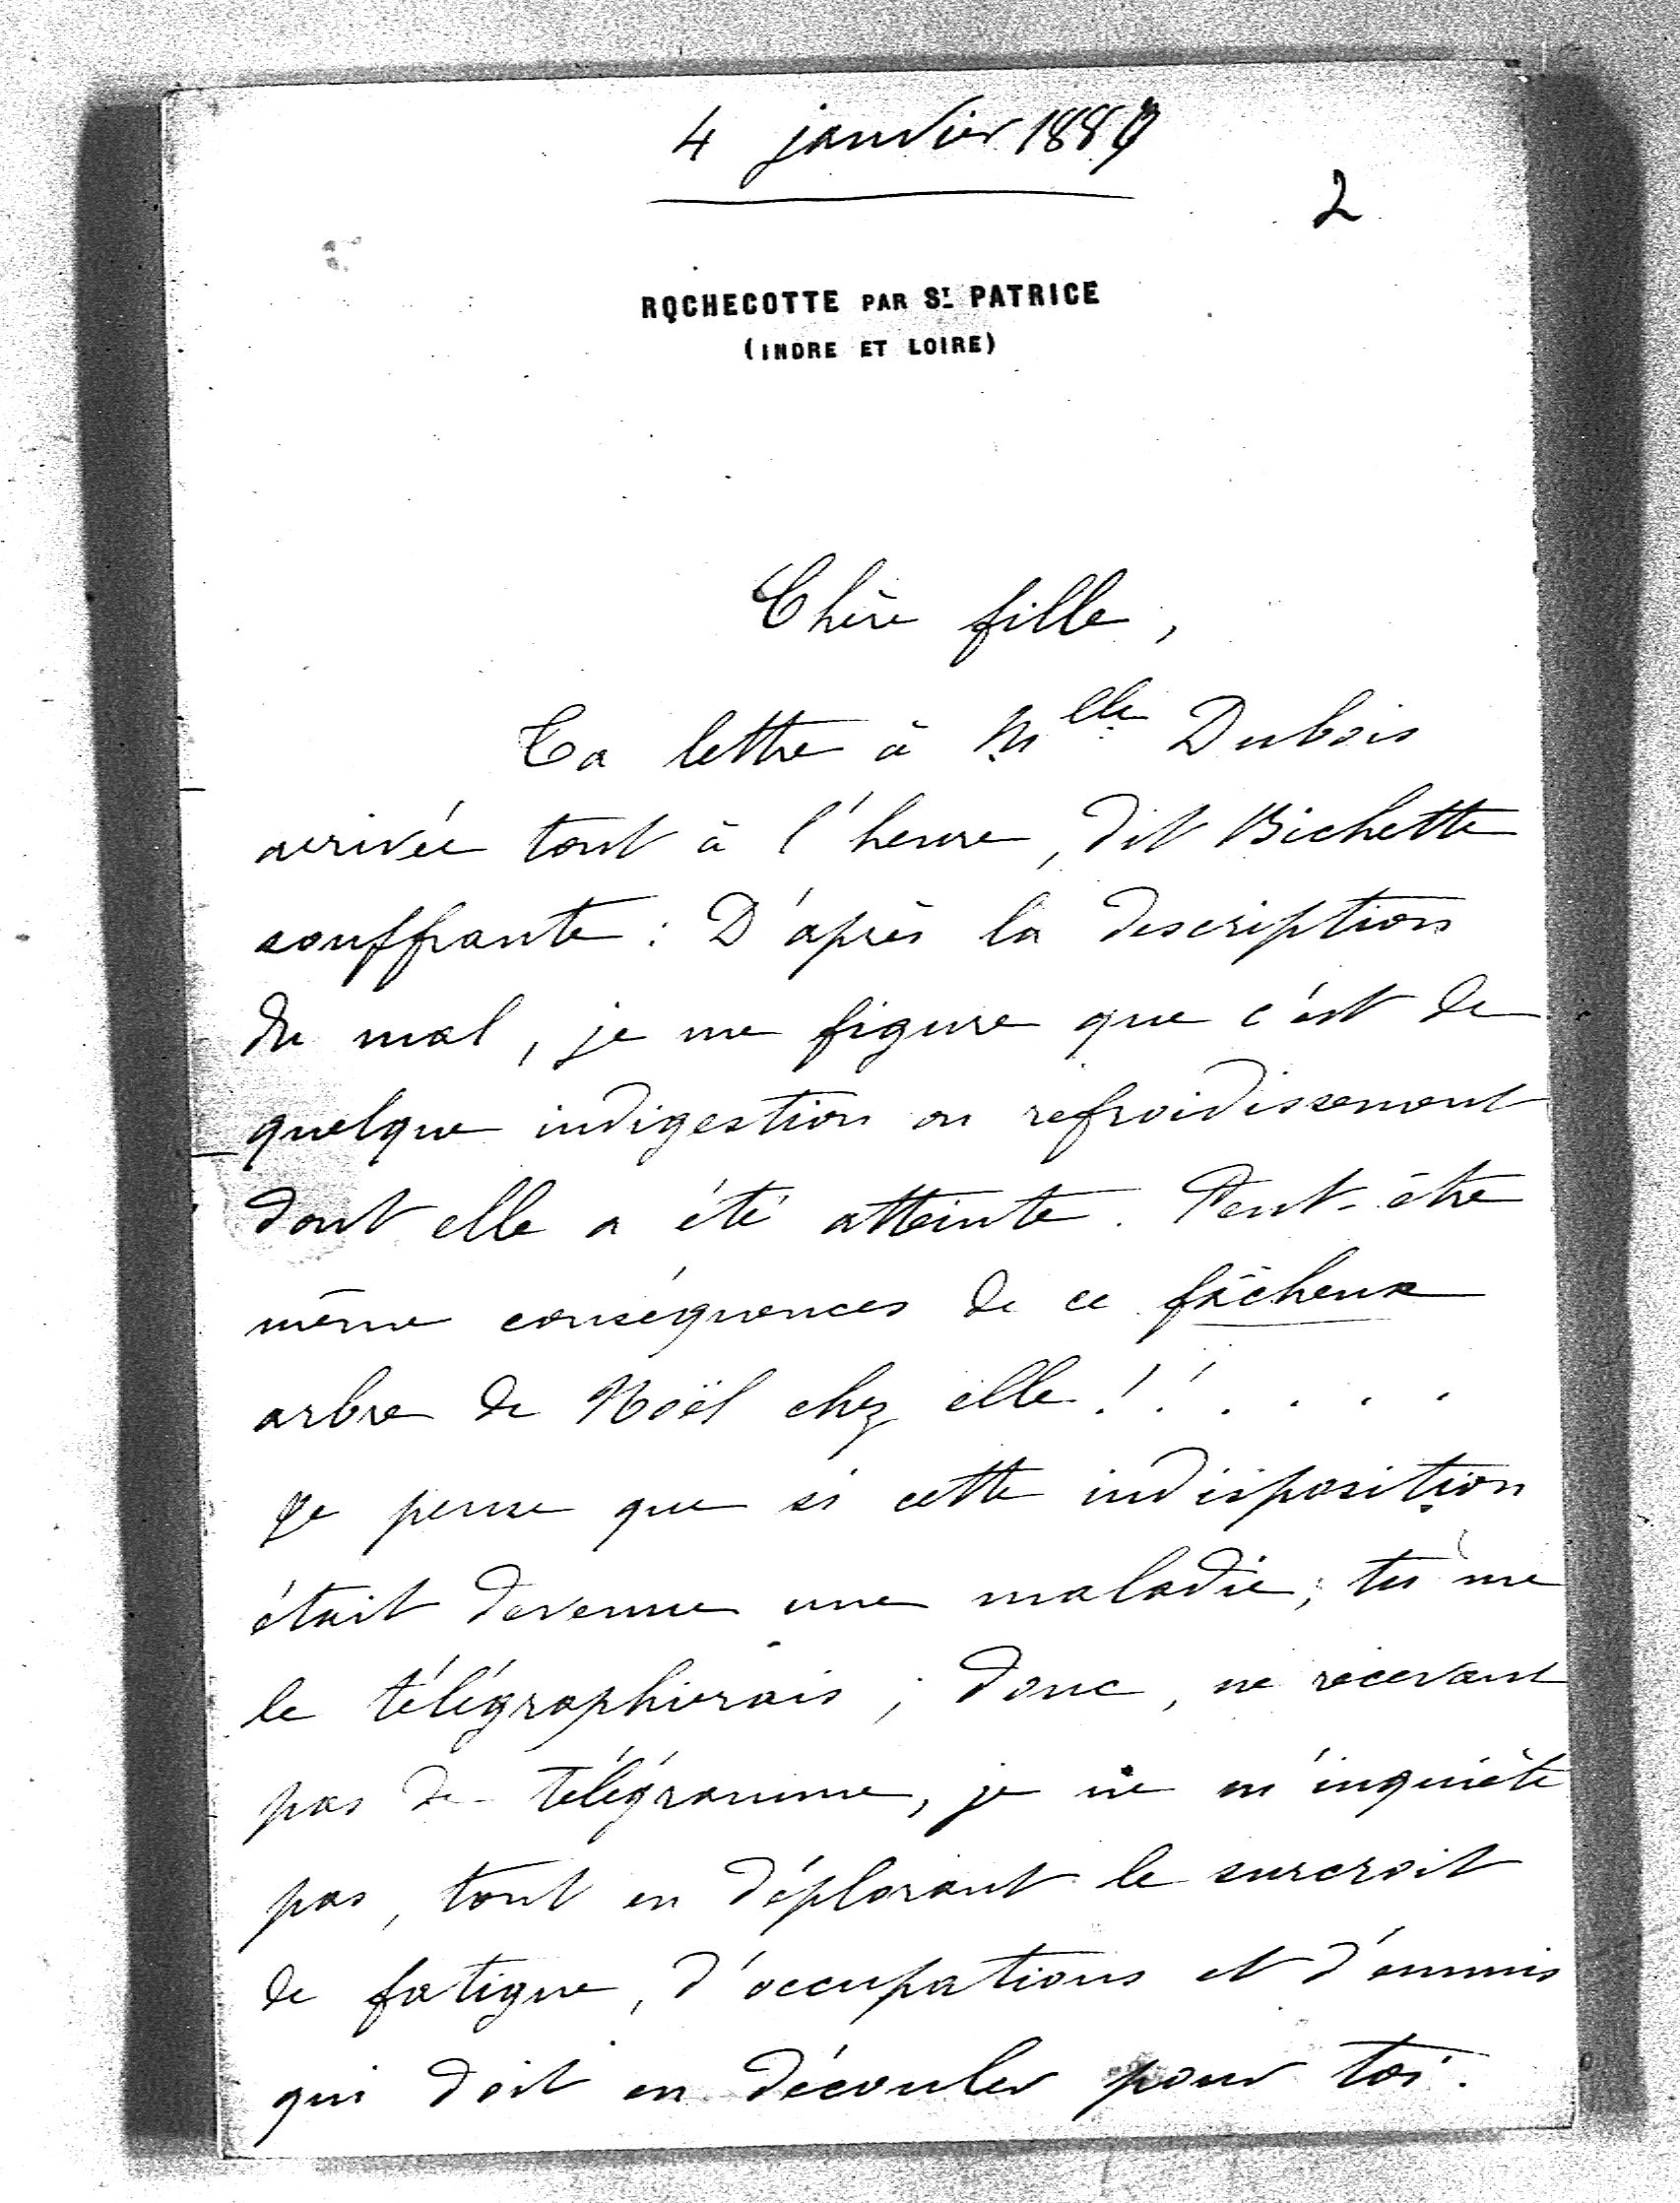 4 janvier
2
ROCHECOTTE PAR ST PATRICE
(INDRE ET LOIRE)
Chère fille,
Ta lettre à Mlle Dubois
arrivée tout à l'heure, dit Bichette
souffrante : D'après la description
du mal, je me figure que c'est de
quelque indigestion ou refroidissement
dont elle a été atteinte. Peut-être
même conséquences de ce fâcheux
arbre de Noël chez elle!! . . . .
Je pense que si cette indisposition
était devenue une maladie, tu me
le télégraphierais ; donc, ne recevant
pas de télégramme, je ne m'inquiète
pas, tout en déplorant le surcroit
de fatigue, d'occupations et d'ennuis
qui doit en découler pour toi.